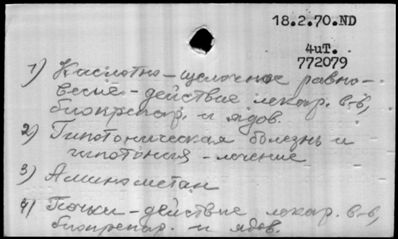 18.2.70.ND
4иТ.
772079
1) Кислотно-щелочное равно-
весие - действие лекар. в-в,
биопрепар. и ядов
2) Гипотоническая болезнь и
гипотония - лечение
3) Аминометан
4) Почки - действие лекар. в-в,
биопрепар. и ядов.